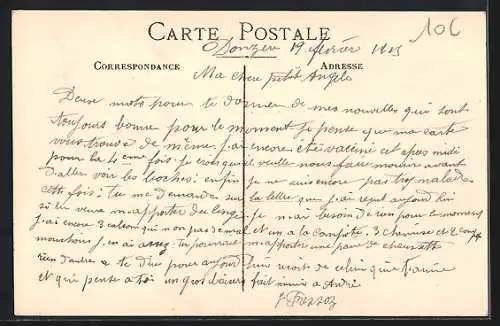 10C
CARTE POSTALE
Donzère 19 février 1915
CORRESPONDANCE ADRESSE
Ma chere petit Angèle
Deux mots pour te donner de mes nouvelles qui sont
toujours bonne pour le moment Je pense que ma carte
vous trouve de même j'ai encore été vaciné cet apres midi
pour la 4eme fois. Je crois qu'il veulle nous faire mourire avant
d'aller voir les boches: enfin je ne suis encore pas trop malade
cette fois: tu me demandes sur la lettre que j'ai reçut aujourd'hui
si tu veux m'apporter du linge je n'ai besoin de rien pour le moment
j'ai encore 3 calecon qui non pas d'emal et un a la compote. 3 chemise et 2
mouchoirs j'en ai assez tu pourras m'apporter une paire de chaussette
rien d'autres a te dire pour aujourd'hui reçoit de celui qui t'aime
et qui pense a toi un gros baisers fait mimi a André